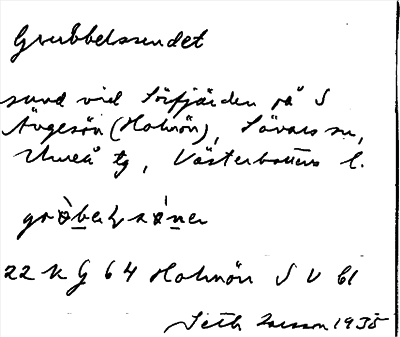 Grubbelssundet
sund vid Sörfjärden på S
Ängesön (Holmön), Sävars sn,
Umeå tg, Västerbottens l.
22 K G 64 Holmön S V bl
Seth Larsson 1935